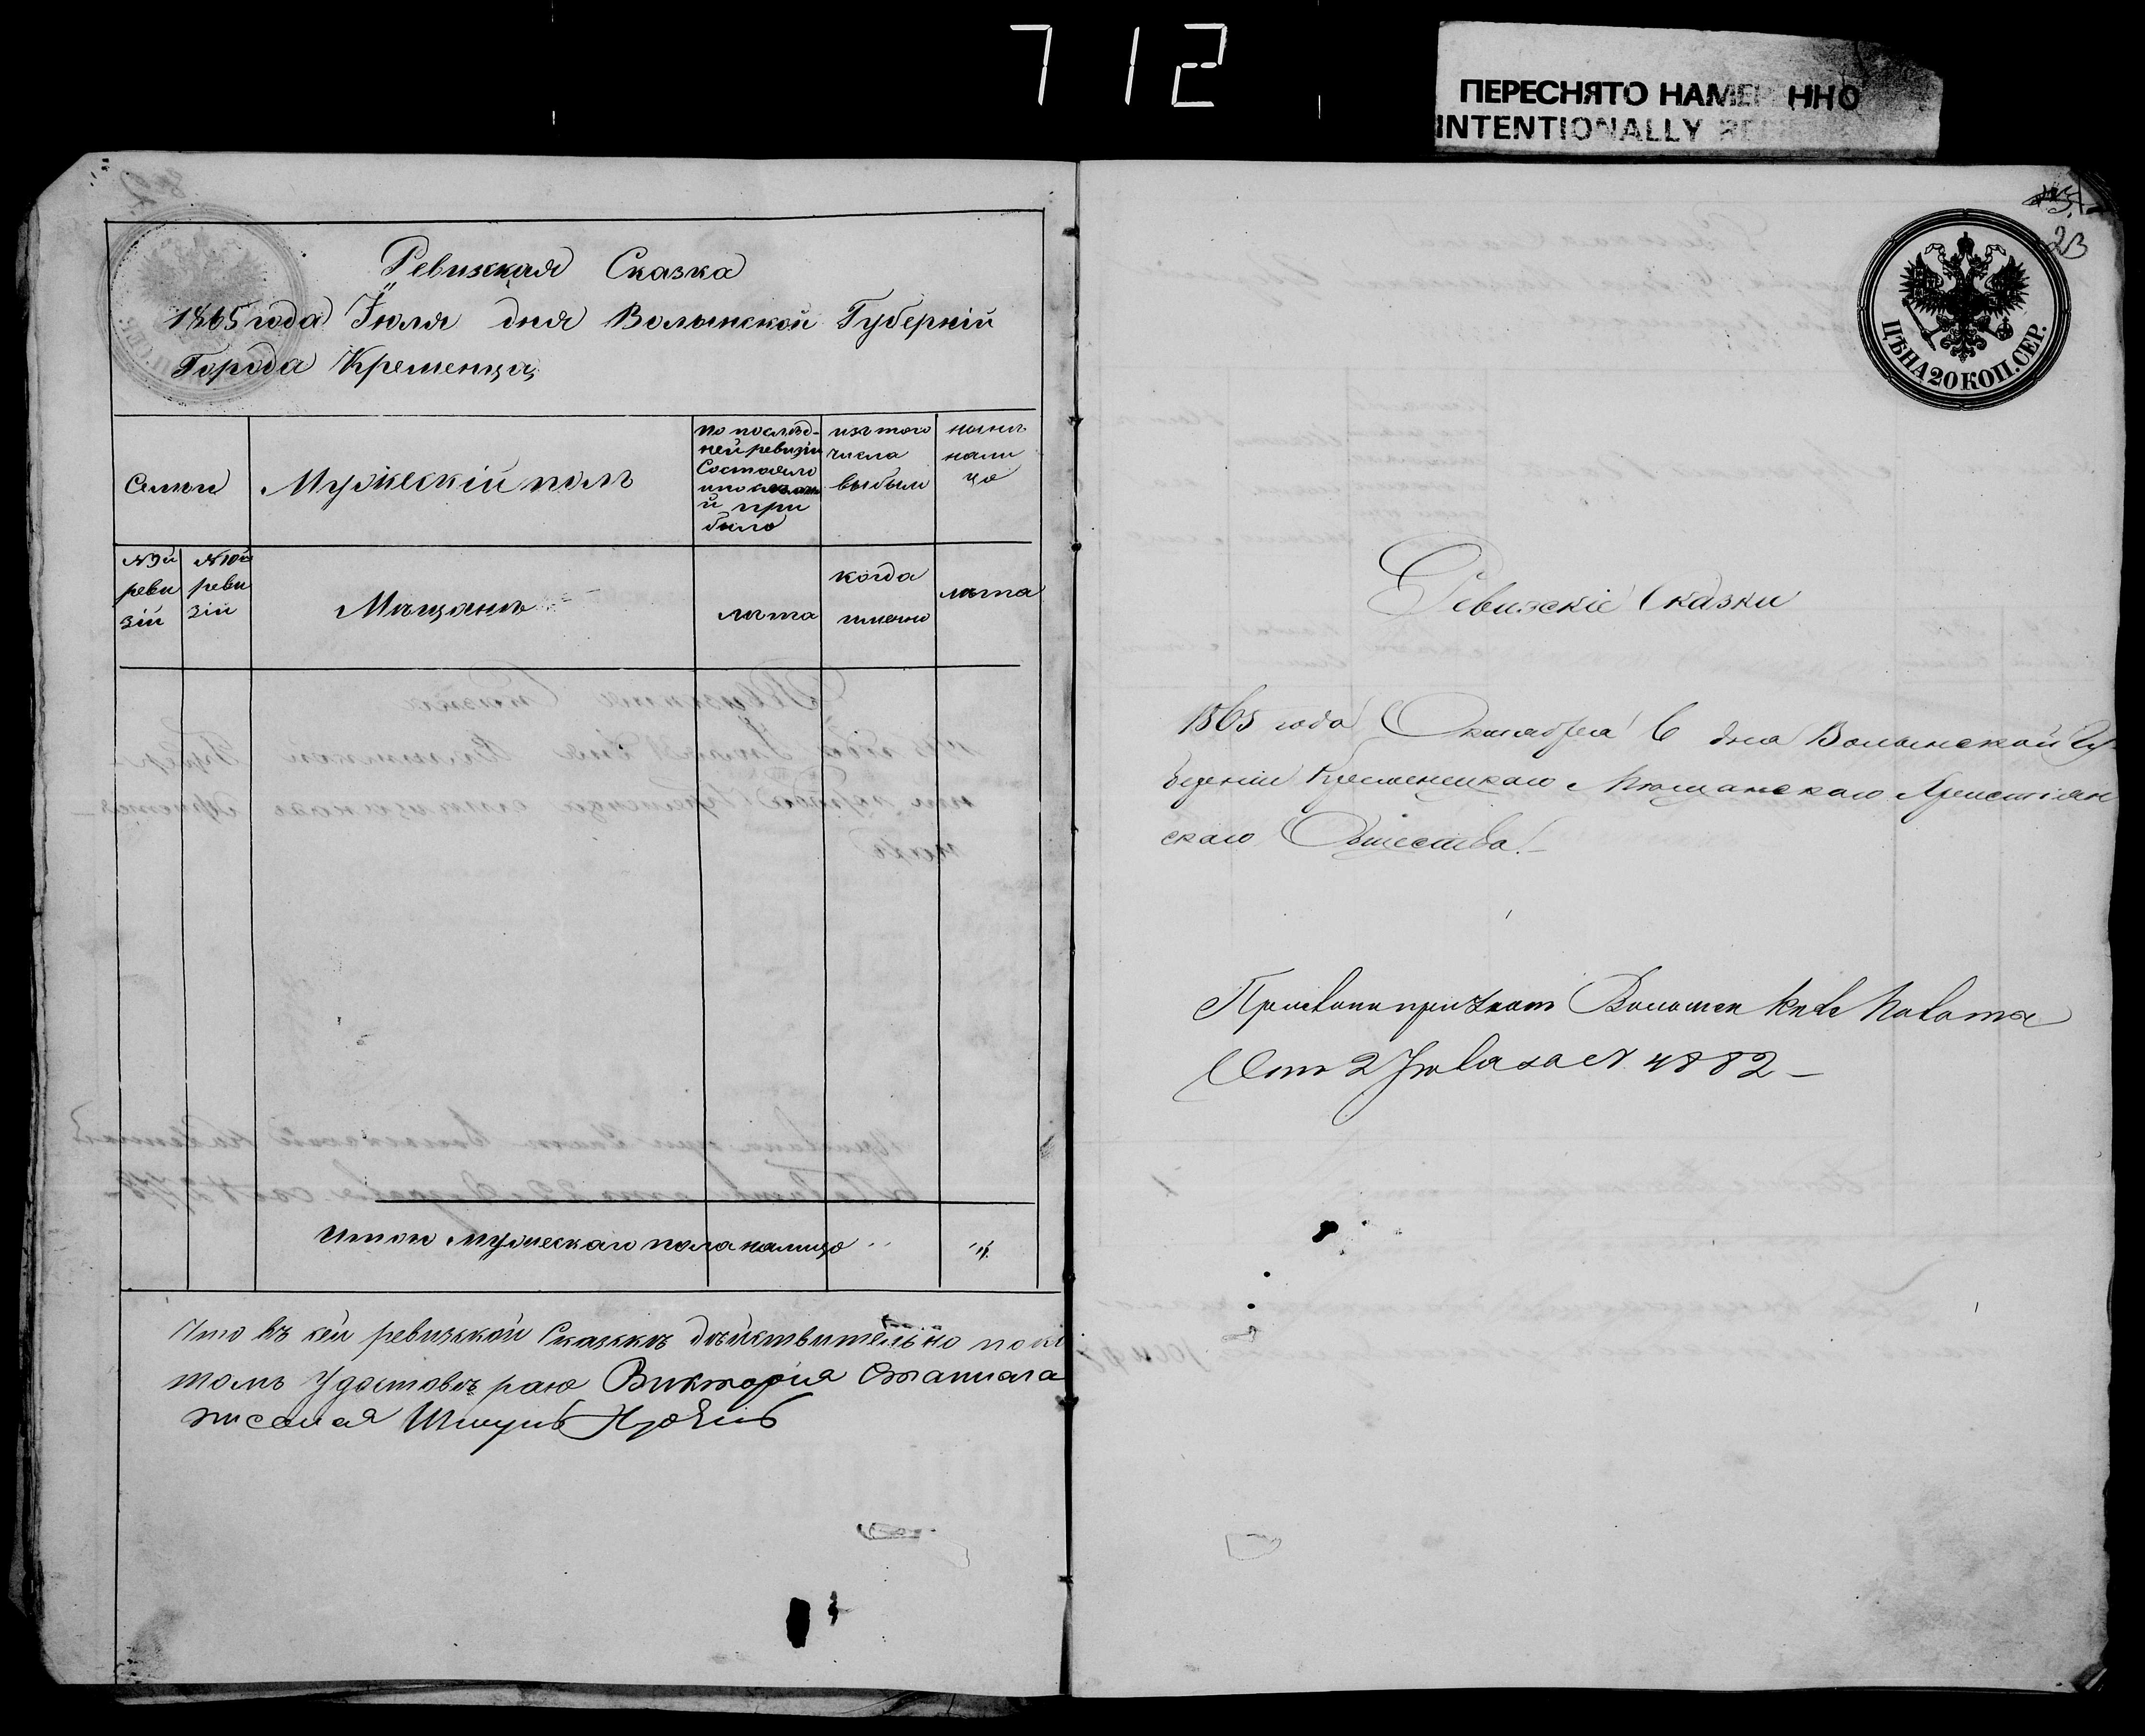 712
ПЕРЕСНЯТО НАМЕР ННО
INTENTIONALLY
Ревижкая Сказка
1865 года Іюля дня Волынской Губерніи
Города Кременца
Семьи
Мужескій полъ
по послѣд-
ней ревизіи
Состояло
и при
было
изъ того
числа
выбыли
нынѣ
нали
цо
№ 9й
реви
зіи
№ 10й
реви
зіи
Мѣщанъ
лѣта
когда
именно
лѣта
Итого мужескаго пола налицо
Что въ сей ревизской Сказкѣ дѣйствительно
Удостовѣряю Виктория
23
ЦѢНА 20 КОП. СЕР.
Ревизскіе Сказки
1865 года Октября 6 дня Волынской Гу-
берніи Кременецкаго Мѣщанскаго Христіян
скаго Общества
Волынск Палаты
Отъ 2 за № 4882 –